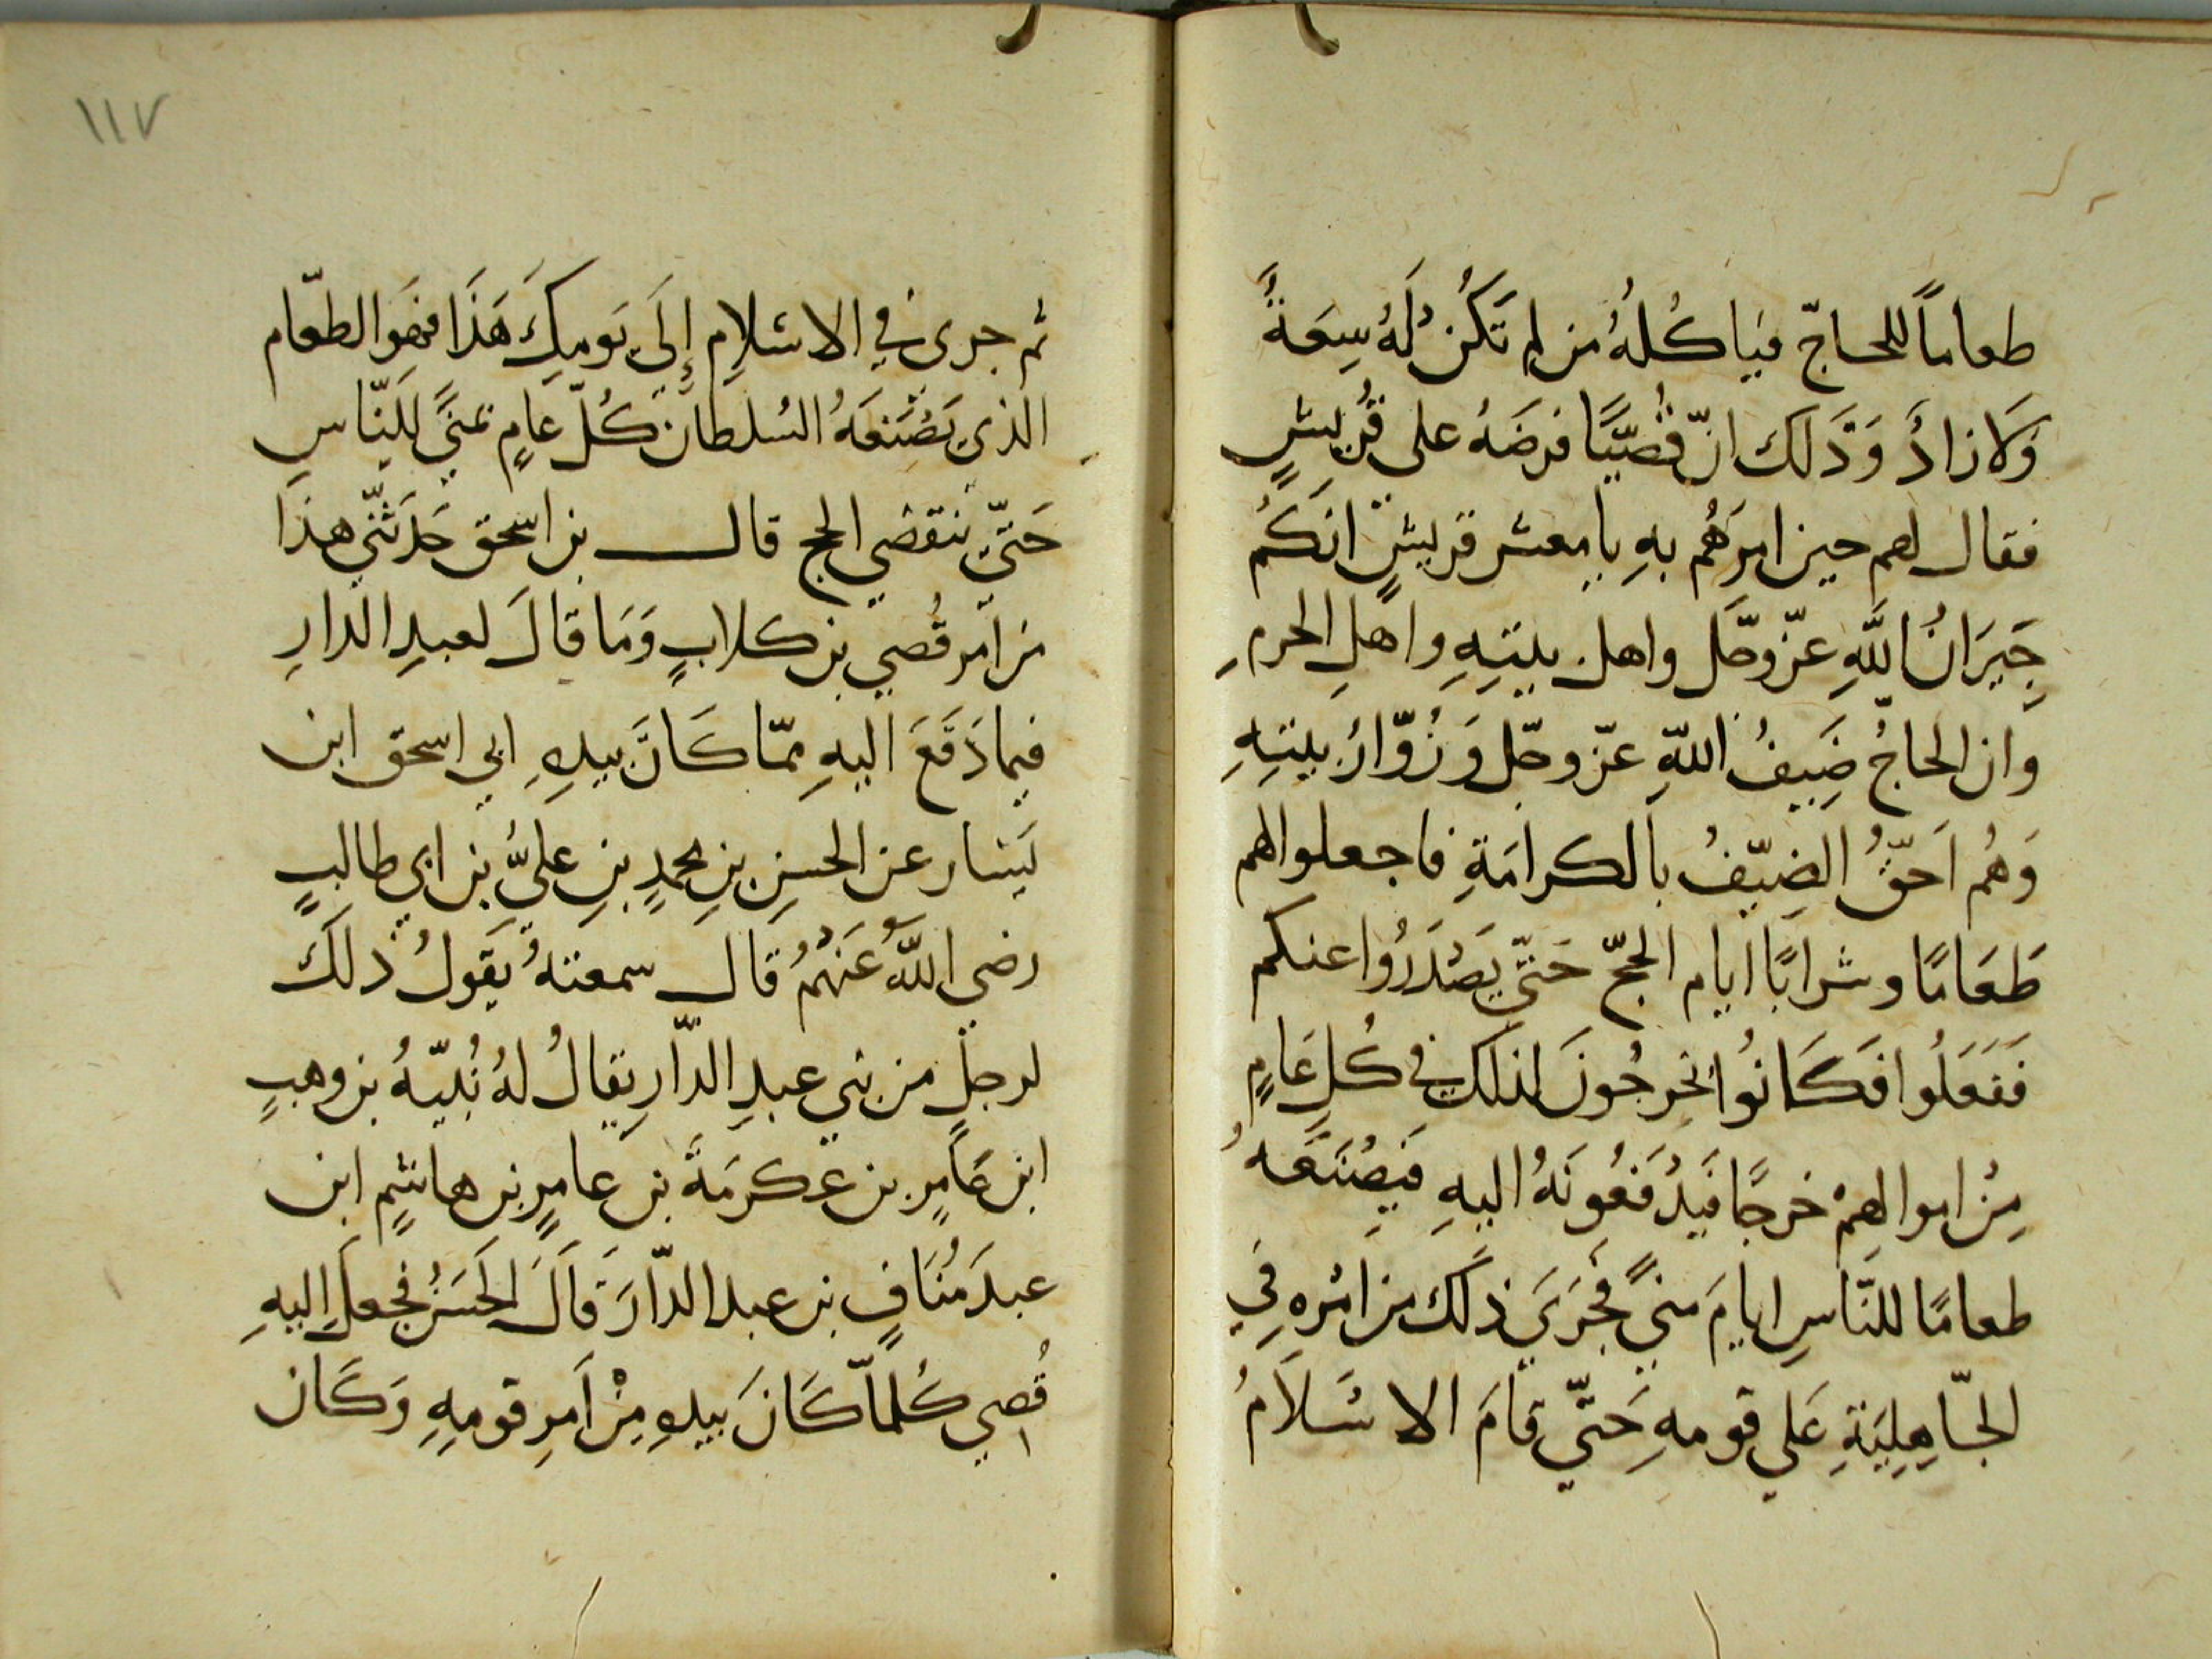 طعاماً للحاجّ فياكُلهُ من لم تَكُن لَهُ سِعَةً
وَلا زادُ وَذَلكَ انّ قُصيّيًا فرضَهُ على قُريشٍ
فقال لهم حين امرهُم بهِ يا معشر قريشٍ انكُم
جِيَرانُ اللَّهِ عزّ وجّل واهل بيتِهِ واهلِ الحرمِ
وان الحاجُ ضَيفُ اللّهِ عزّ وجّل وَزُوّارُ بيتِهِ
وَهُم اَحقّ الضِيّفُ بالكرامَةِ فاجعلوا لهم
طَعَامًا وشرابًا ايام الحجّ حَتّي يَصْدَرُوا عنكم
فَفَعَلُوا فَكَانُوا يخرجُونَ لذلك في كُلِ عَامٍ
مِنْ اموالهِمْ خرجًا فيَدْفَعُونَهُ اليهِ فيَصْنَعهُ
طعامًا للنّاسِ ايامَ منيً فجَرَيَ ذلك من امْرهِ فِي
الجّاهِلِيَةِ عَلي قومهِ حَتّي قامَ الاسْلاَمُ
١١٧
ثم جرى في الاسْلامِ إِلَي يَومكَ هَذَا فهَوَ الطعّام
الّذي يَصْنَعَهُ السُلطان كُلّ عامٍ بمنيً للنّاسِ
حَتّي ينقضي الحج قال بن اسحق حَدّثني هذا
من اَمر قُصي بن كلابٍ وَمَا قالَ لعبدِ الدّارِ
فيما دَفَعَ اليهِ ممّا كَانَ بيدهِ ابي اسحق ابن
يَسَار عن الحسنِ بنِ محمدٍ بنِ عليُّ بن ابي طالبٍ
رضي اللَّهُ عَنْهُمُ قال سمعتهُ يَقولُ ذلكَ
لرجلٍ من بني عبدِ الدّارِ يقالُ لهُ نُبَيّهُ بن وهبٍ
ابن عَامرٍ بن عكرمَةَ بن عامرٍ بن هاشمٍ ابن
عبدَ مُنَافٍ بن عبد الدّارَ قَالَ الحَسَنُ فجعلَ اِليهِ
قُصي كُلماّ كَانَ بيدهِ مِنْ اَمرِ قومِهِ وَكَان